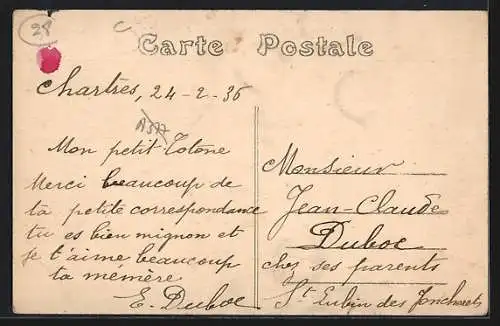 28
Carte Postale
Chartres, 24-2-36
A377
Mon petit Totone
Merci beaucoup de
ta petite correspondance
tu es bien mignon et
je t'aime beaucoup
ta memère
E. Duboc
Monsieur
Jean-Claude
Duboc
chez ses parents
St Aubin des